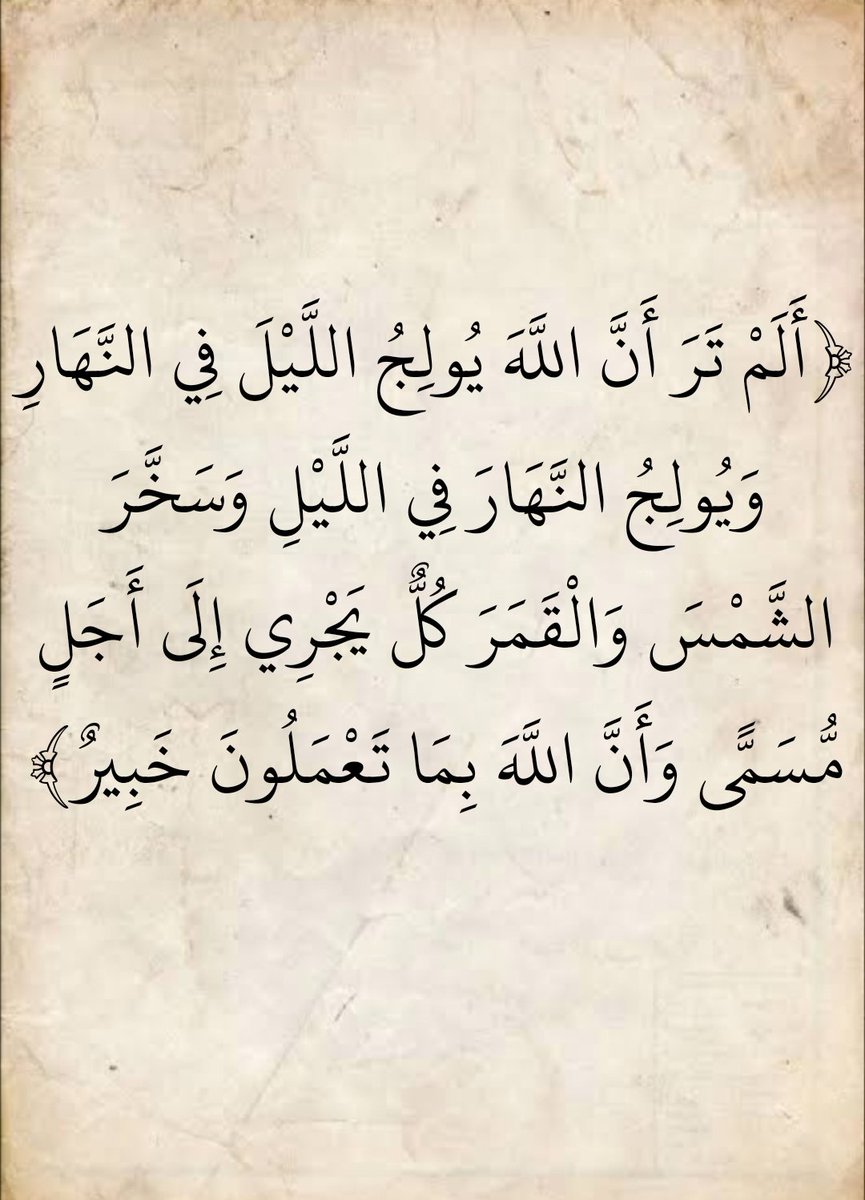 ﴿أَلَمْ تَرَ أَنَّ اللَّهَ يُولِجُ اللَّيْلَ فِي النَّهَارِ
وَيُولِجُ النَّهَارَ فِي اللَّيْلِ وَسَخَّرَ
الشَّمْسَ وَالْقَمَرَ كُلٌّ يَجْرِي إِلَى أَجَلٍ
مُّسَمًّى وَأَنَّ اللَّهَ بِمَا تَعْمَلُونَ خَبِيرٌ﴾